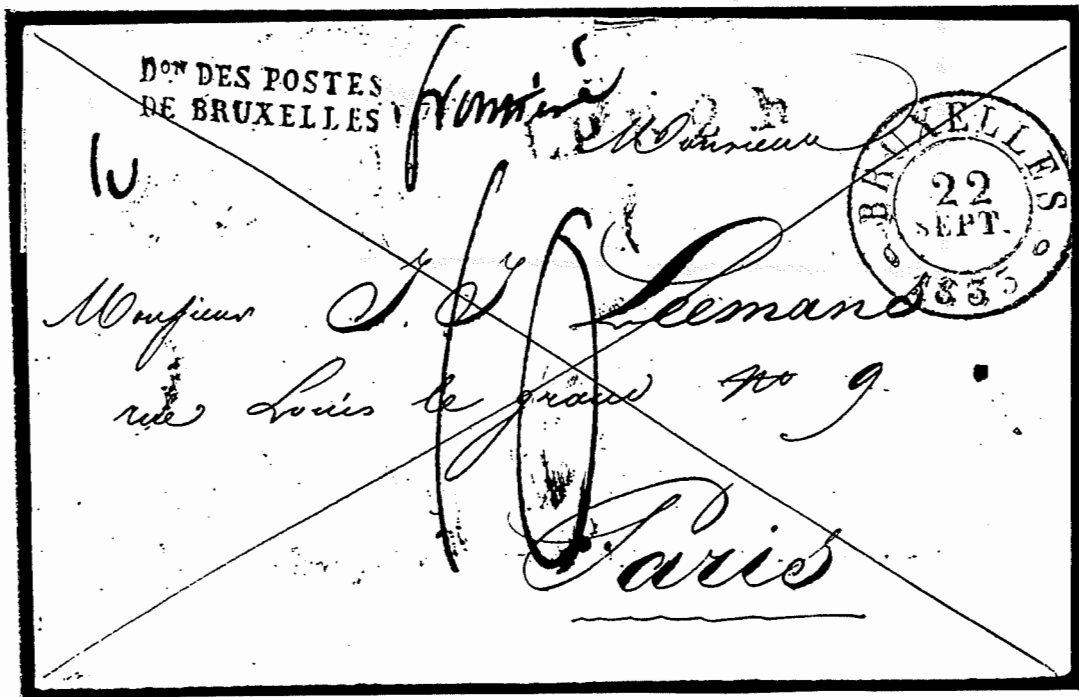 Don DES POSTES
DE BRUXELLES
Monsieur
BRUXELLES
22
SEPT.
1835
Monsieur J. J. Leemans
rue Louis le grand no 9.
10
Paris